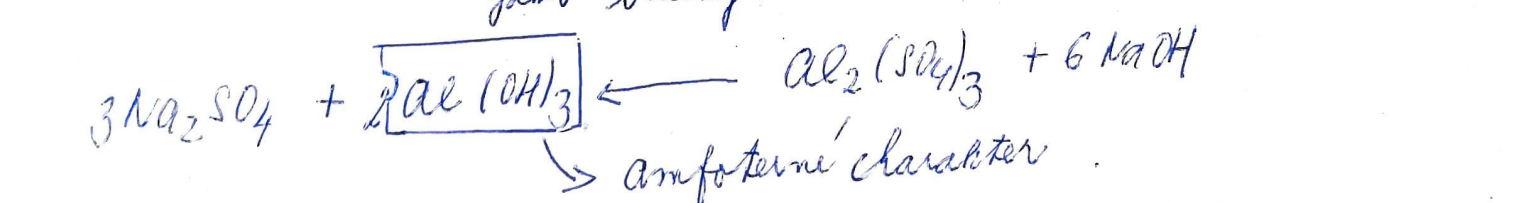 3Na₂SO₄ + 2Al(OH)₃ ← Al₂(SO₄)₃ + 6NaOH
↘ amfoterné charakter.